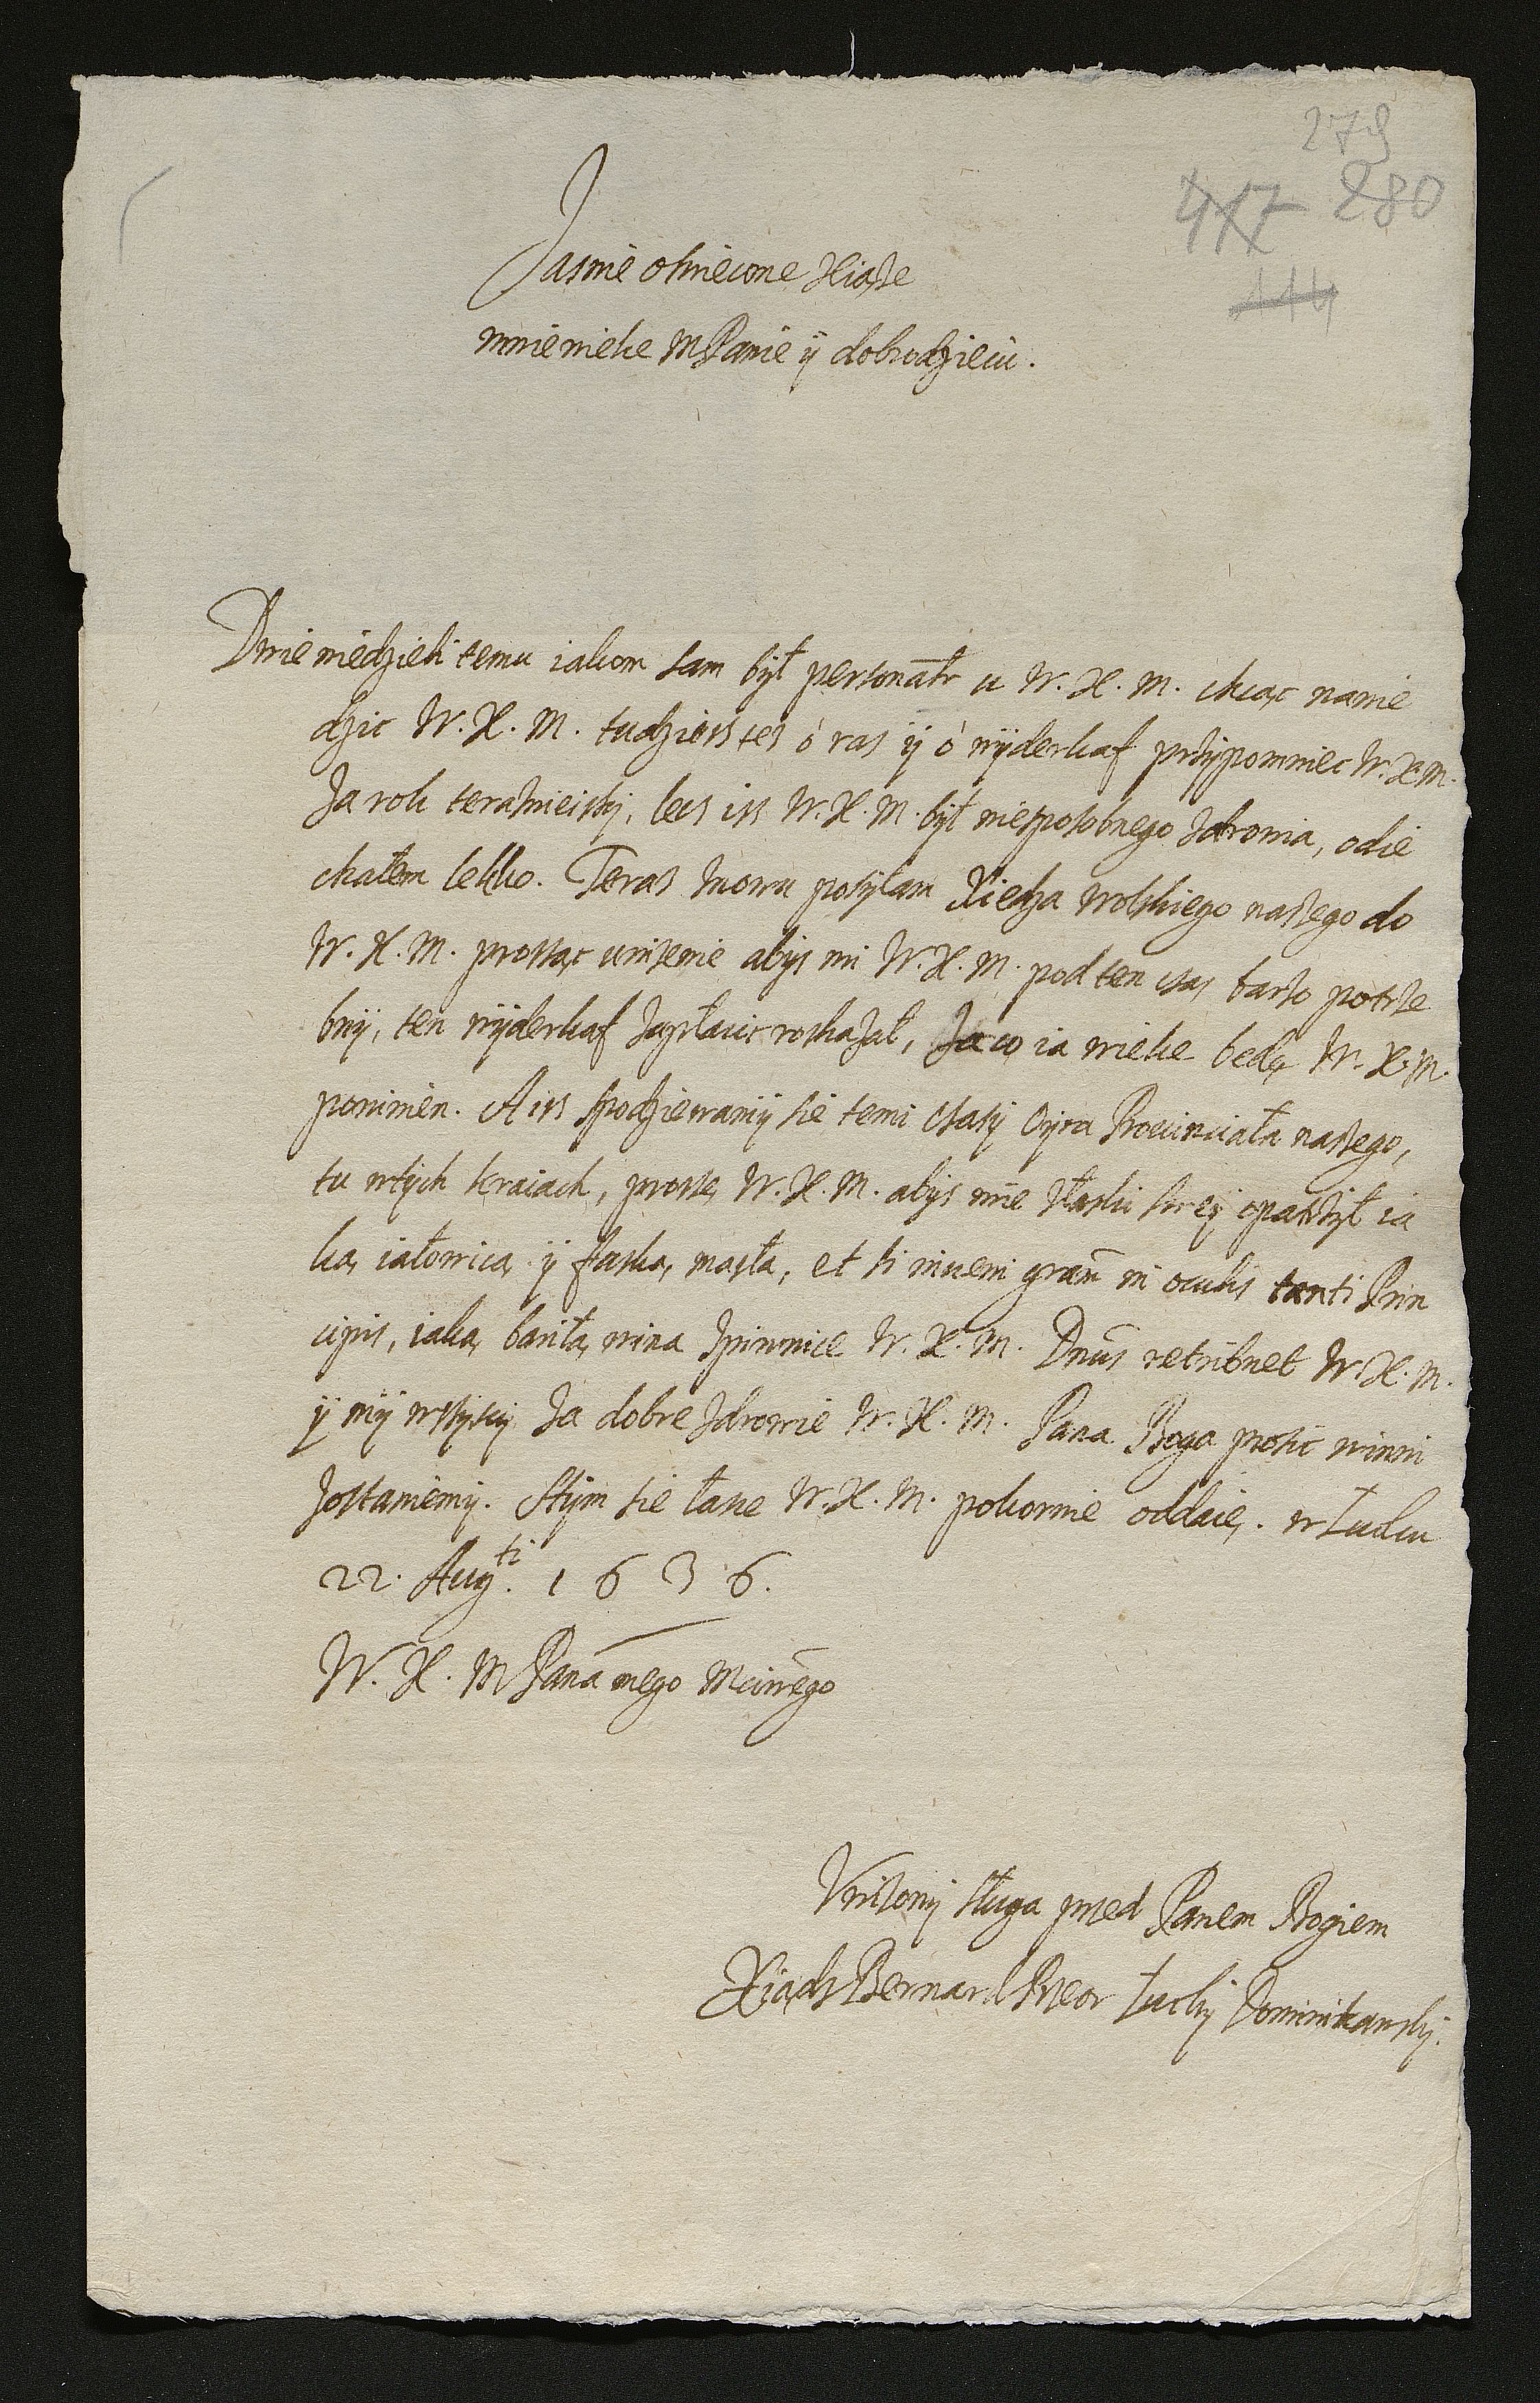 279
417 280
114
Jasnie oswiecone Xiąże
mnie wielce MPanie ÿ dobrodzieiu.
Dwie niedzieli temu iakom sam bÿł personalr u W. X. M. chcąc nawie
dzic W. X. M. tudziess tes ó ras ÿ ó wÿderkaf przÿpomniec W. X. M.
Za rok terazniejszÿ, lecs iss W. X. M. bÿł niesposobnego zdrowia, odie
chałem lekko. Teras znowu posÿłam Xiedza Wolskiego naszego do
W. X. M. prosząc unizenie abÿs mi W. X. M. pod ten czas barzo potrze
bnÿ, ten wÿderkaf zapłacic roskazał, Za co ia wielce będę W. X. M.
powinien. A iss spodziewamÿ sie temi czasÿ Oÿca Prowinciała naszego,
tu w tÿch kraiach, proszę W. X. M. abÿs mie złaski sweÿ opatrzÿł ia
ką iałowicą ÿ faską masła, et si inveni gram̃ in oculis tanti Prin
cipis, iaką bariłą wina z piwnice W. X. M. Dnũs retribuet W. X. M.
ÿ mÿ wszÿscÿ Za dobre zdrowie W. X. M. Pana Boga prosic winni
zostaniemÿ. Stÿm sie łasce W. X. M. pokornie oddaię. w Łucku
22. Augti. 1636.
W. X. M Pana mego Mciwego
Unizonÿ sługa przed Panem Bogiem
Xiądz Bernard Przeor Łuckÿ Dominikanskÿ.